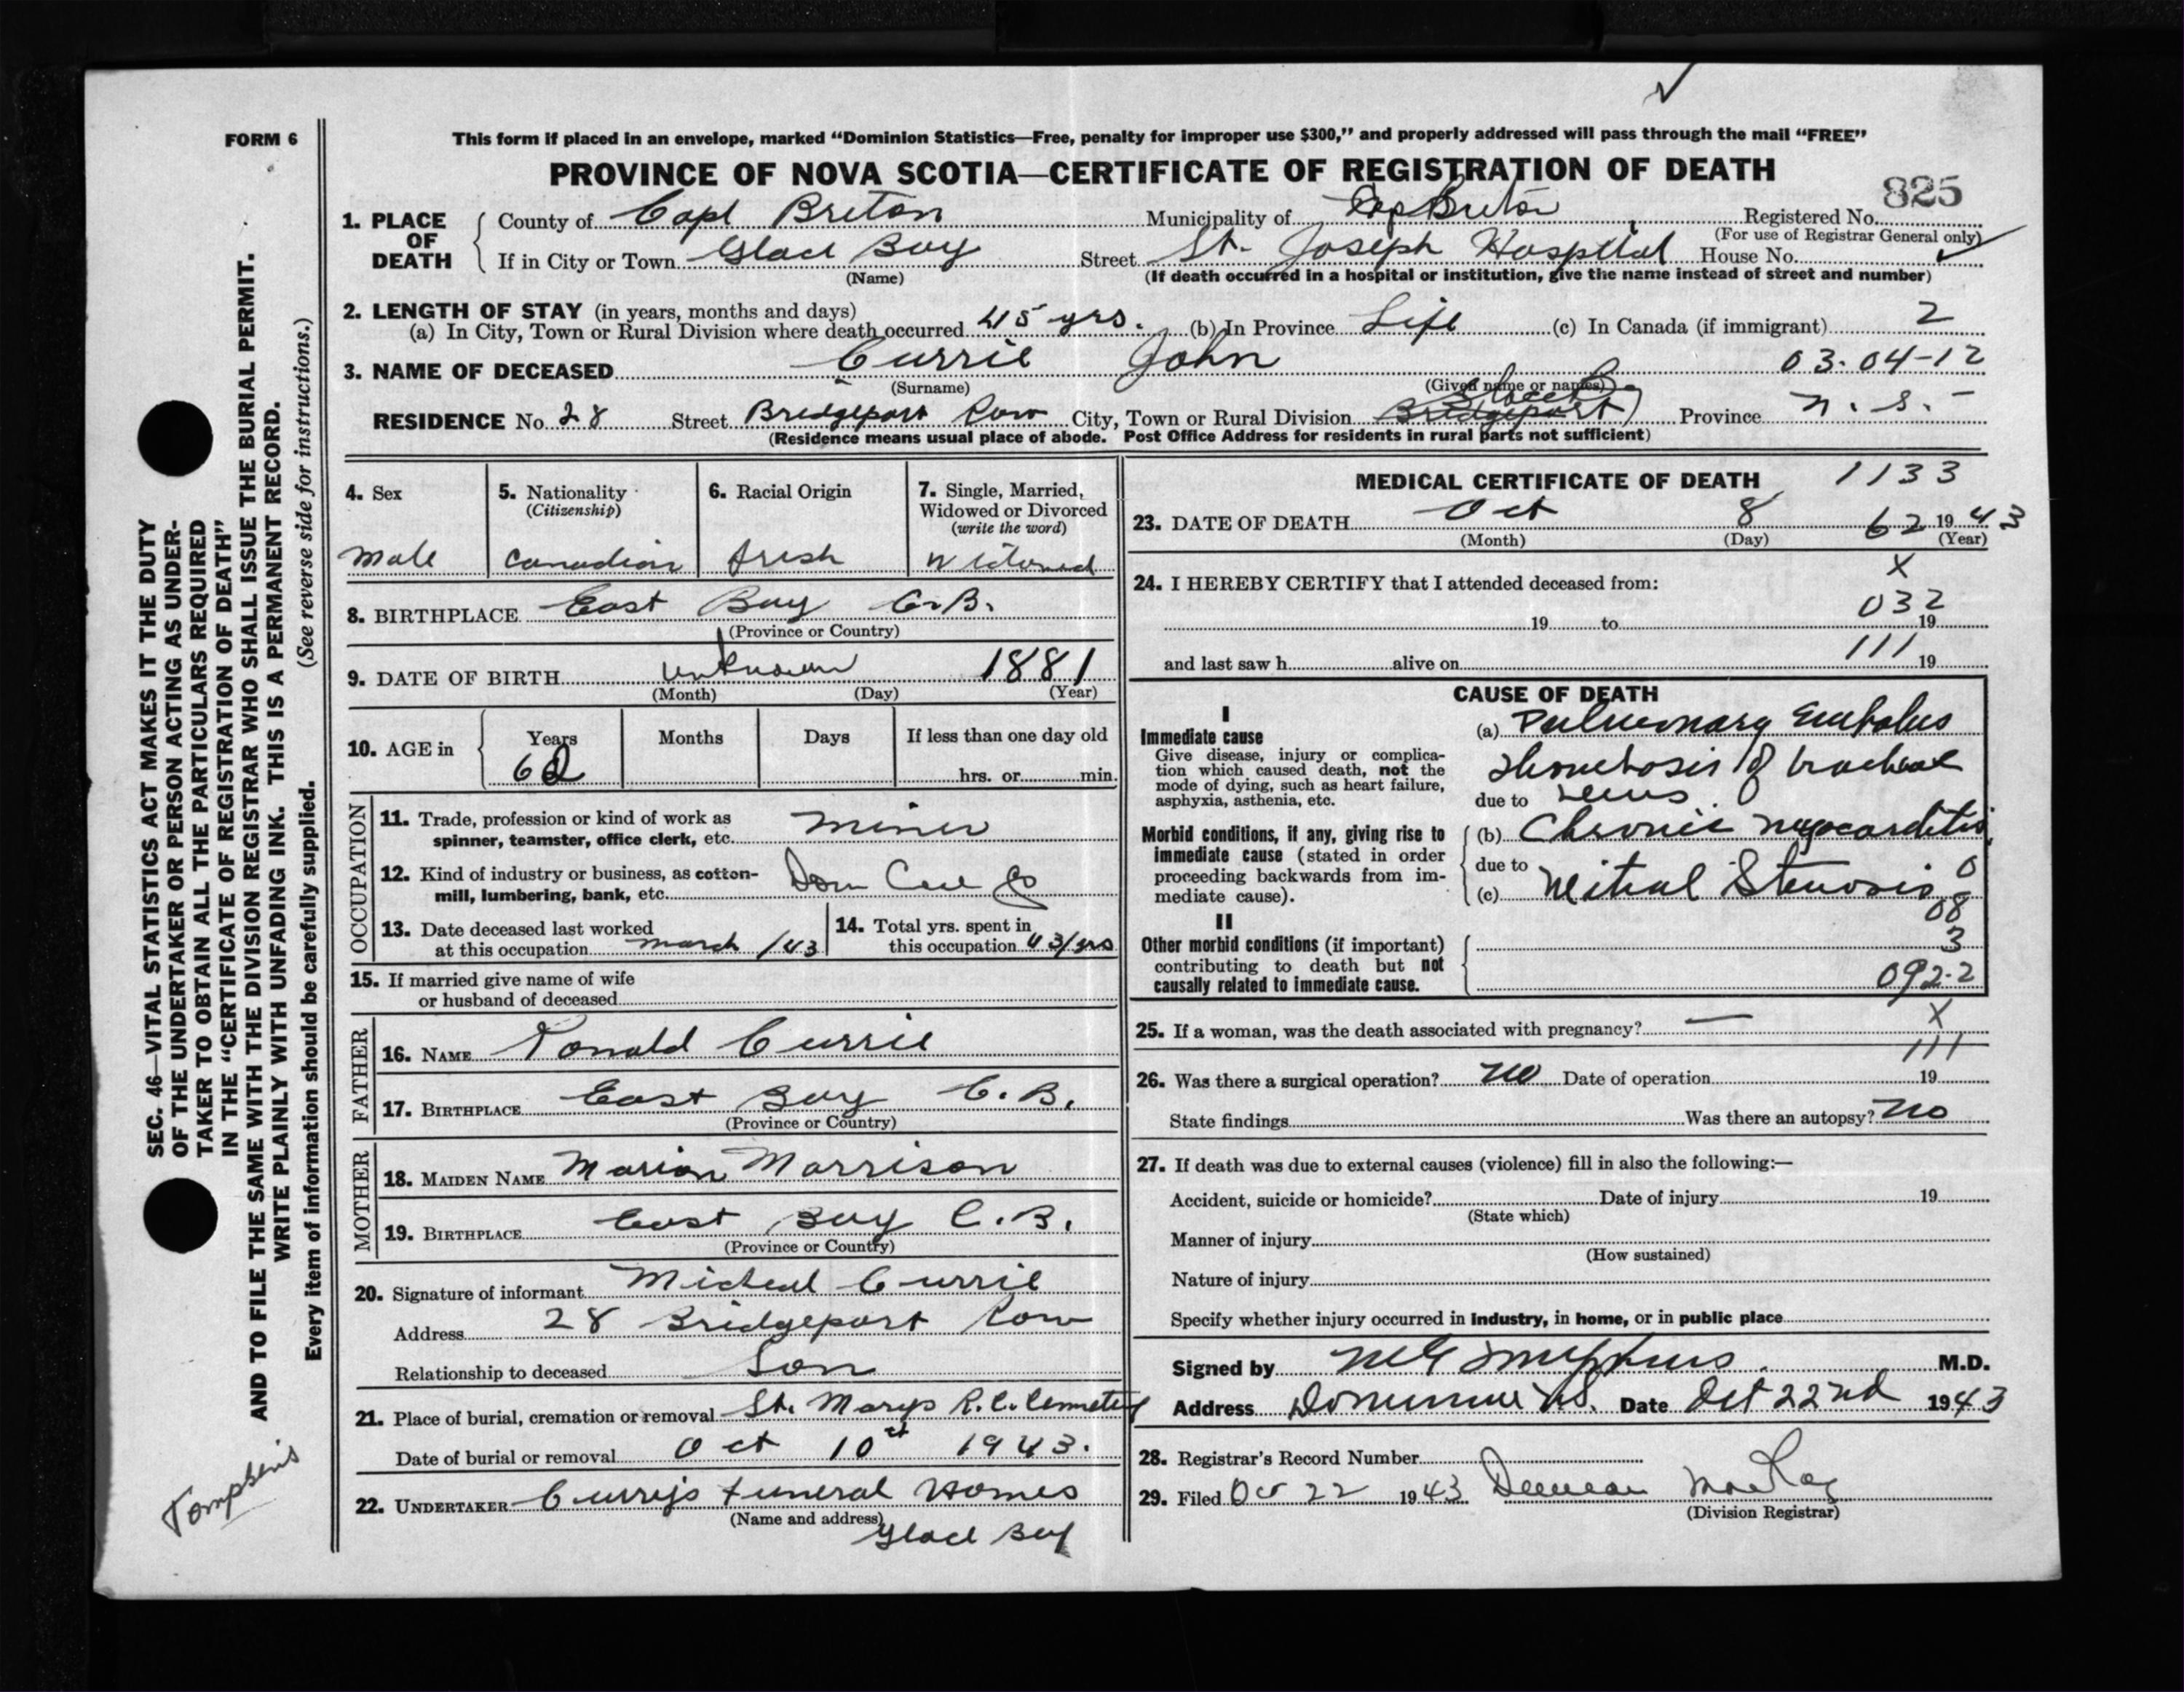 FORM 6
This form if placed in an envelope, marked “Dominion Statistics—Free, penalty for improper use $300,” and properly addressed will pass through the mail “FREE”
PROVINCE OF NOVA SCOTIA—CERTIFICATE OF REGISTRATION OF DEATH
825
1. PLACE OF DEATH
County of Cape Breton Municipality of Cap Breton Registered No.
(For use of Registrar General only)
If in City or Town Glace Bay Street St. Joseph Hospital House No.
(Name) (If death occurred in a hospital or institution, give the name instead of street and number)
2. LENGTH OF STAY (in years, months and days)
(a) In City, Town or Rural Division where death occurred 45 yrs. (b) In Province Life (c) In Canada (if immigrant) 2
3. NAME OF DECEASED Currie John 03-04-12
(Surname) (Given name or names)
RESIDENCE No. 28 Street Bridgeport Row City, Town or Rural Division Bridgeport Province N. S.-
(Residence means usual place of abode. Post Office Address for residents in rural parts not sufficient)
4. Sex
Male
5. Nationality
(Citizenship)
Canadian
6. Racial Origin
Irish
7. Single, Married, Widowed or Divorced
(write the word)
Widowed
8. BIRTHPLACE East Bay C.B.
(Province or Country)
9. DATE OF BIRTH unknown 1881
(Month) (Day) (Year)
10. AGE in
Years Months Days If less than one day old
62
hrs. or min.
OCCUPATION
11. Trade, profession or kind of work as
spinner, teamster, office clerk, etc. miner
12. Kind of industry or business, as cotton-
mill, lumbering, bank, etc. Dom Coal Co
13. Date deceased last worked
at this occupation March /43
14. Total yrs. spent in
this occupation 43/yrs
15. If married give name of wife
or husband of deceased
FATHER
16. NAME Donald Currie
17. BIRTHPLACE East Bay C.B.
(Province or Country)
MOTHER
18. MAIDEN NAME Marion Morrison
19. BIRTHPLACE East Bay C.B.
(Province or Country)
20. Signature of informant Micheal Currie
Address 28 Bridgeport Row
Relationship to deceased Son
21. Place of burial, cremation or removal St. Marys R.C. Cemetery
Date of burial or removal Oct 10 1943.
22. UNDERTAKER Curry's Funeral Homes
(Name and address)
Glace Bay
MEDICAL CERTIFICATE OF DEATH 1133
23. DATE OF DEATH Oct 8 62 1943
(Month) (Day) (Year)
24. I HEREBY CERTIFY that I attended deceased from:
X
032
19 to 19
111
and last saw h alive on 19
CAUSE OF DEATH
I
Immediate cause
Give disease, injury or complication which caused death, not the mode of dying, such as heart failure, asphyxia, asthenia, etc.
(a) Pulmonary Embolus
Thrombosis of
due to
Morbid conditions, if any, giving rise to immediate cause (stated in order proceeding backwards from immediate cause).
(b) Chronic myocarditis
due to
(c) Mitral Stenosis
0
08
II
Other morbid conditions (if important) contributing to death but not causally related to immediate cause.
3
092-2
25. If a woman, was the death associated with pregnancy? — X
111
26. Was there a surgical operation? No Date of operation 19
State findings Was there an autopsy? No
27. If death was due to external causes (violence) fill in also the following:—
Accident, suicide or homicide? Date of injury 19
(State which)
Manner of injury
(How sustained)
Nature of injury
Specify whether injury occurred in industry, in home, or in public place
Signed by M.D.
Address Dominion NS. Date Oct 22nd 1943
28. Registrar's Record Number
29. Filed Oct 22 1943 Duncan MacKay
(Division Registrar)
SEC. 46—VITAL STATISTICS ACT MAKES IT THE DUTY
OF THE UNDERTAKER OR PERSON ACTING AS UNDER-
TAKER TO OBTAIN ALL THE PARTICULARS REQUIRED
IN THE “CERTIFICATE OF REGISTRATION OF DEATH”
AND TO FILE THE SAME WITH THE DIVISION REGISTRAR WHO SHALL ISSUE THE BURIAL PERMIT.
WRITE PLAINLY WITH UNFADING INK. THIS IS A PERMANENT RECORD.
Every item of information should be carefully supplied. (See reverse side for instructions.)
Tompkins